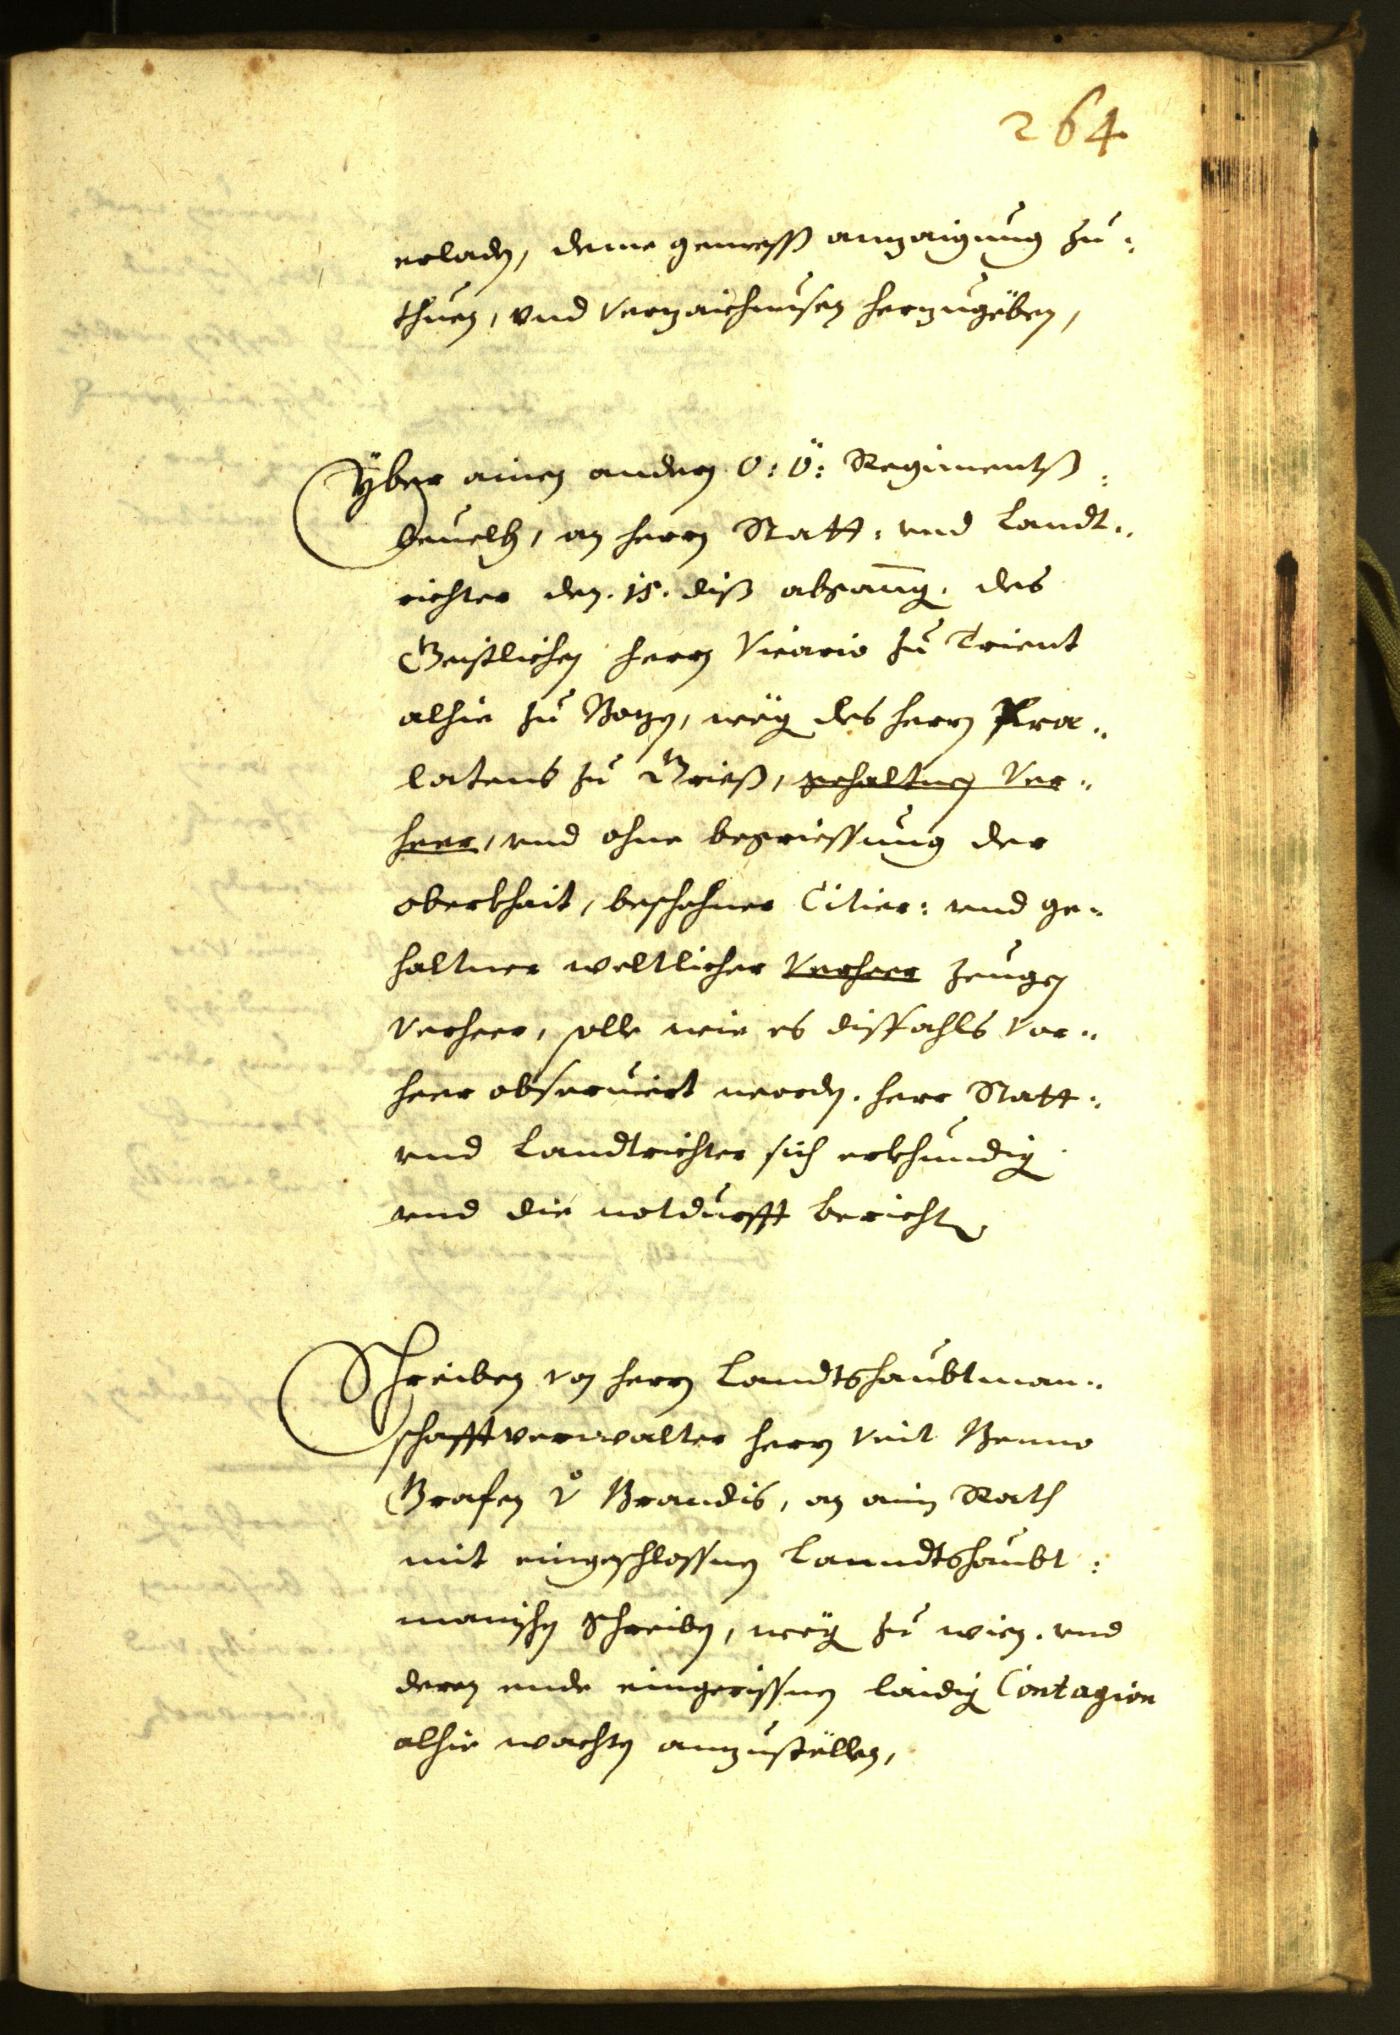 264
erladen, deme gemeß anzaigung zu¬
thuen, vnd Verzaichnusen herzugeben,
Yber ainen andern O: Ö: Regimentß¬
beuelh, an herrn Statt- vnd Landt¬
richter den .15. diß abgang. des
Geistlichen herrn Vicario zu Trient
alhie zu Botzen, weg des herrn Præ¬
latens zu Grieß, gehaltnen Ver¬
heer, vnd ohne begriessung der
oberkhait, beschehner Citier- vnd ge¬
haltner weltlicher Verheer Zeugen
Verheer, solle wie es dißfahls vor¬
heer obseruiert worden. herr Statt-
vnd Landtrichter sich erkhundig
vnd die notdurfft berichten
Schreiben von herrn Landtshaubtman¬
schafftverwalter herrn Veit Benno
Grafen v. Brandis, an ain Rath
mit eingeschlossnen Lanndtshaubt¬
manischen Schreiben, weg zu wien. vnd
deren ende eingerissnen laidig Contagion
alhie wachten anzustellen,